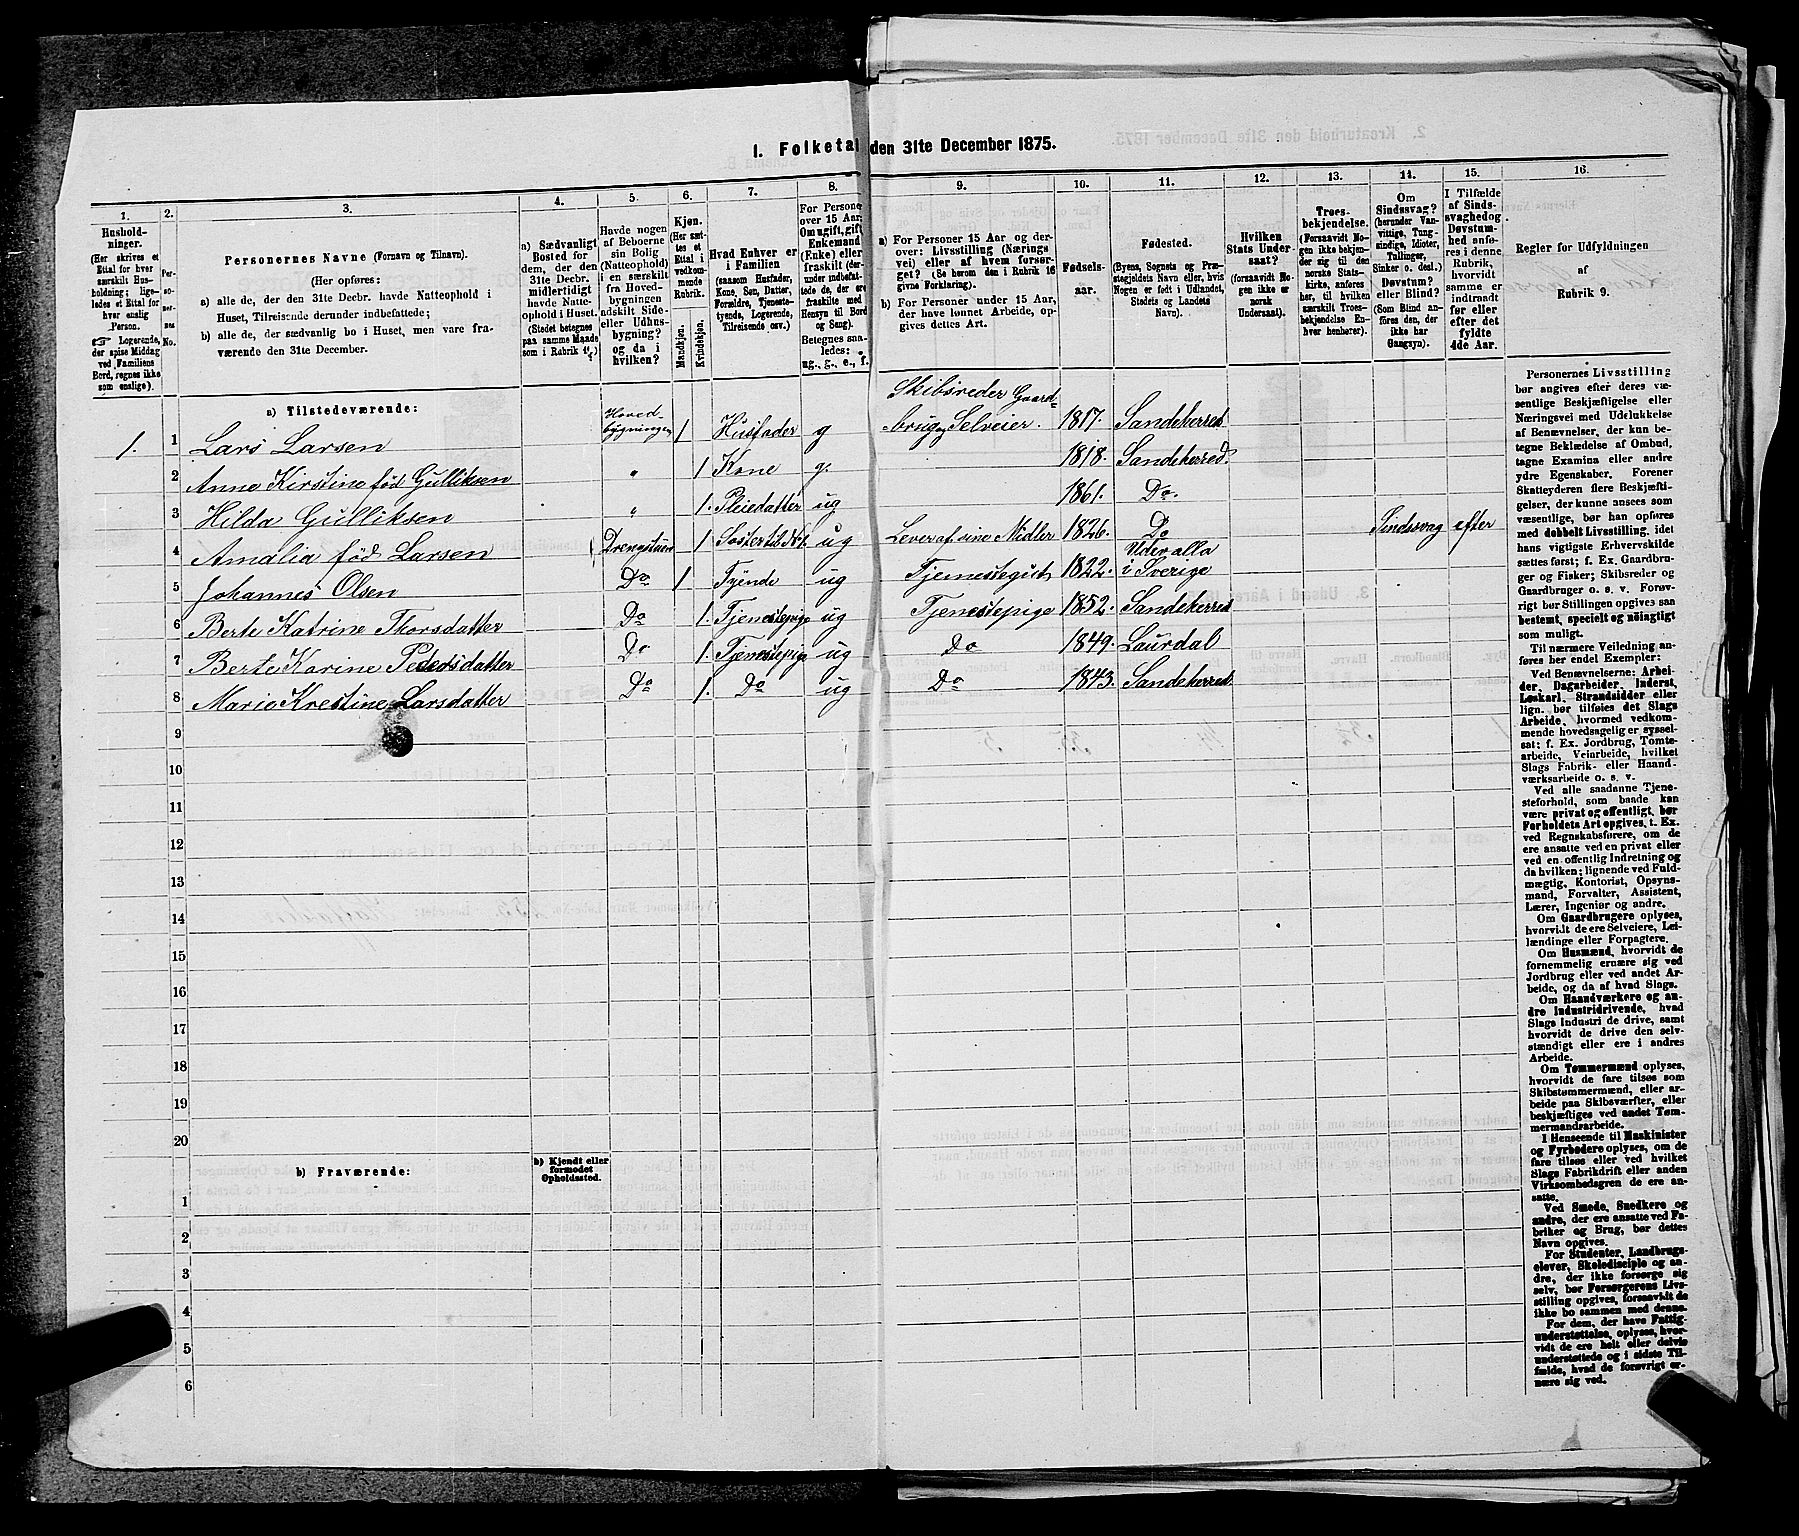 1. Folketal den 31te December 1875.
1. 2. 3. 4. 5. 6. 7. 8. 9. 10. 11. 12. 13. 14. 15. 16.
Hushold-
ninger.
(Her skrives et
Ettal for hver
særskilt Hus-
holdning; lige-
ledes et Ettal for
hver enslig
Person.
☞ Logerende,
der spise Middag
ved Familiens
Bord, regnes ikke
som enslige).
Per-
so-
ner-
nes
No.
Personernes Navne (Fornavn og Tilnavn).
(Her opføres:
a) alle de, der den 31te Decbr. havde Natteophold i
Huset, Tilreisende derunder indbefattede;
b) alle de, der sædvanlig bo i Huset, men vare fra-
værende den 31te December.
a) Sædvanligt
Bosted for
dem, der den
31te Decbr.
midlertidigt
havde Natte-
ophold i Huset.
(Stedet betegnes
paa samme Maade
som i Rubrik 11).
Havde nogen
af Beboerne
sin Bolig
(Natteophold)
i en særskilt
fra Hoved-
bygningen
adskilt Side-
eller Udhus-
bygning?
og da i
hvilken?
Kjøn.
(Her sæt-
tes et
Ettal i
vedkom-
mende
Rubrik.
Mandkjøn.
Kvindekjøn.
Hvad Enhver er
i Familien
(saasom Husfader,
Kone, Søn, Datter,
Forældre, Tjeneste-
tyende, Logerende,
Tilreisende osv.)
For Personer
over 15 Aar:
Om ugift, gift,
Enkemand
(Enke) eller
fraskilt (der-
under indbefat-
tede de, der ere
fraskilte med
Hensyn til Bord
og Seng).
Betegnes saa-
ledes:
ug., g., e., f.
a) For Personer 15 Aar og der-
over: Livsstilling (Nærings
vei) eller af hvem forsør-
get? (Se herom den i Rubrik 16
givne Forklaring).
b) For Personer under 15 Aar,
der have lønnet Arbeide, op-
gives dettes Art.
Fødsels-
aar.
Fødested.
(Byens, Sognets og Præ-
stegjeldets Navn eller, hvis
Nogen er født i Udlandet,
Stedets og Landets
Navn).
Hvilken
Stats Under-
saat?
(forsaavidt No-
gen ikke er
norsk
Undersaat).
Troes-
bekjendelse.
(Forsaavidt No-
gen ikke bekjen-
der sig til den
norske Stats-
kirke, anføres
her, til hvilken
særskilt Troes-
bekjendelse En-
hver henhører).
Om
Sindssvag?
(herunder Van-
vittige, Tung-
sindige, Idioter,
Tullinger,
Sinker o. desl.)
Døvstum?
eller Blind?
(Som Blind an-
føres den, der
ikke har
Gangsyn).
I Tilfælde
af Sinds-
svaghed og
Døvstum-
hed anfø-
res i denne
Rubrik,
hvorvidt
samme er
indtraadt
før eller
efter det
fyldte
4de Aar.
Regler for Udfyldningen
af
Rubrik 9.
a) Tilstedeværende:
1. 1 Lars Larsen Hoved-bygningen 1 Husfader g Skibsreder Gaard-brug og Selveier. 1817. Sandeherred
2 Anne Kirstine fød Gulliksen " 1. Kone g. 1818. Sandeherred.
3 Hilda Gulliksen " 1. Pleiedatter ug 1861. Do.
4 Amalia fød Larsen Drengstuen 1 Søster til No 1. ug Lever af sine Midler 1826. Do Sindssvag efter
5 Johannes Olsen Do 1 Tyende ug Tjenestegut 1822. Udevalla i Sverige
6 Berte Katrine Thorsdatter Do 1. Tjenestepige ug Tjenestepige 1852. Sandeherred
7 Berte Karine Pedersdatter Do 1. Tjenestepige ug Do 1849. Laurdal
8 Marie Krestine Larsdatter Do 1. Do ug Do 1843. Sandeherred.
9
10
11
12
13
14
15
16
17
18
19
20
b) Fraværende:
b) Kjendt eller
formodet
Opholdssted.
1
2
3
4
5
6
Personernes Livsstilling
bør angives efter deres væ-
sentlige Beskjæftigelse eller
Næringsvei med Udelukkelse
af Benævnelser, der kun be-
tegne Beklædelse af Ombud,
tagne Examina eller andre
ydre Egenskaber. Forener
Skatteyderen flere Beskjæfti-
gelser, der kunne ansees som
væsentlige, bør han opføres
med dobbelt Livsstilling, idet
hans vigtigste Erhvervskilde
sættes først; f. Ex. Gaardbru-
ger og Fisker; Skibsreder og
Gaardbruger o. s. v. Forøv-
rigt bør Stillingen opgives saa
bestemt, specielt og nøiagtigt
som muligt.
Til nærmere Veiledning an-
føres her endel Exempler:
Ved Benævnelserne: Arbei-
der, Dagarbeider, Inderst,
Løskarl, Strandsidder eller
lign. bør tilføies det Slags
Arbeide, hvormed vedkom-
mende hovedsagelig er syssel-
sat; f. Ex. Jordbrug, Tomte-
arbeide, Veiarbeide, hvilket
Slags Fabrik- eller Haand-
værksarbeide o. s. v.
Ved alle saadanne Tjene-
steforhold, som baade kan
være privat og offentligt, bør
Forholdets Art opgives, t. Ex.
ved Regnskabsførere, om de
ere ansatte ved en privat eller
ved en offentlig Indretning og
da hvilken; lignende ved Fuld-
mægtig, Kontorist, Opsyns-
mand, Forvalter, Assistent,
Lærer, Ingeniør og andre.
Om Gaardbrugere oplyses,
hvorvidt de ere Selveiere, Lei-
lændinge eller Forpagtere.
Om Husmænd, hvorvidt de
fornemmelig ernære sig ved
Jordbrug eller ved andet Ar-
beide, og da af hvad Slags.
Om Haandværkere og an-
dre Industridrivende, hvad
Slags Industri de drive, samt
hvorvidt de drive den selv-
stændigt eller ere i andres
Arbeide.
Om Tømmermænd oplyses,
hvorvidt de fare tilsøs som
Skibstømmermænd, eller ar-
beide paa Skibsværfter, eller
beskjæftiges ved andet Tøm-
mermandsarbeide.
I Henseende til Maskinister
og Fyrbødere oplyses, om de
fare tilsøs eller ved hvilket
Slags Fabrikdrift eller anden
Virksomhedsgren de ere an-
satte.
Ved Smede, Snedkere og
andre, der ere ansatte ved Fa-
briker og Brug, bør dettes
Navn opgives.
For Studenter, Landbrugs-
elever, Skoledisciple og an-
dre, der ikke forsørge sig
selv, bør Forsørgerens Livs-
stilling opgives, forsaavidt de
ikke bo sammen med denne.
For dem, der have Fattig-
understøttelse, oplyses, hvor-
vidt de ere helt eller delvis
understøttede og i sidste Til-
fælde, hvad de forøvrigt er-
nære sig ved.